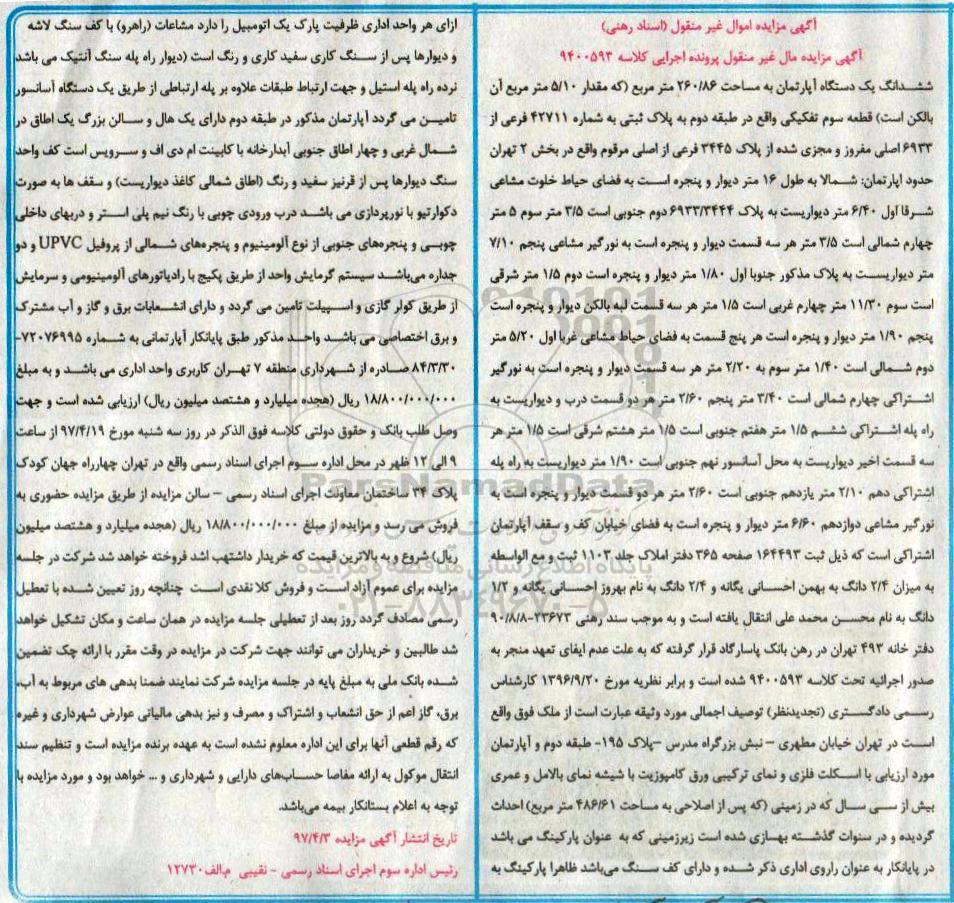 آگهی مزایده اموال غیر منقول (اسناد رهنی)
آگهی مزایده مال غیر منقول پرونده اجرایی کلاسه ۹۴۰۰۵۹۳
ششدانگ یک دستگاه آپارتمان به مساحت ۲۶۰/۸۶ متر مربع (که مقدار ۵/۱۰ متر مربع آن
بالکن است) قطعه سوم تفکیکی واقع در طبقه دوم به پلاک ثبتی به شماره ۴۲۷۱۱ فرعی از
۶۹۳۳ اصلی مفروز و مجزی شده از پلاک ۳۴۴۵ فرعی از اصلی مرقوم واقع در بخش ۲ تهران
حدود آپارتمان: شمالا به طول ۱۶ متر دیوار و پنجره است به فضای حیاط خلوت مشاعی
شرقا اول ۶/۴۰ متر دیواریست به پلاک ۶۹۳۳/۳۴۴۴ دوم جنوبی است ۳/۵ متر سوم ۵ متر
چهارم شمالی است ۳/۵ متر هر سه قسمت دیوار و پنجره است به نورگیر مشاعی پنجم ۷/۱۰
متر دیواریست به پلاک مذکور جنوبا اول ۱/۸۰ متر دیوار و پنجره است دوم ۱/۵ متر شرقی
است سوم ۱۱/۳۰ متر چهارم غربی است ۱/۵ متر هر سه قسمت لبه بالکن دیوار و پنجره است
پنجم ۱/۹۰ متر دیوار و پنجره است هر پنج قسمت به فضای حیاط مشاعی غربا اول ۵/۲۰ متر
دوم شمالی است ۱/۴۰ متر سوم به ۲/۲۰ متر هر سه قسمت دیوار و پنجره است به نورگیر
اشتراکی چهارم شمالی است ۳/۴۰ متر پنجم ۲/۶۰ متر هر دو قسمت درب و دیواریست به
راه پله اشتراکی ششم ۱/۵ متر هفتم جنوبی است ۱/۵ متر هشتم شرقی است ۱/۵ متر هر
سه قسمت اخیر دیواریست به محل آسانسور نهم جنوبی است ۱/۹۰ متر دیواریست به راه پله
اشتراکی دهم ۲/۱۰ متر یازدهم جنوبی است ۲/۶۰ متر هر دو قسمت دیوار و پنجره است به
نورگیر مشاعی دوازدهم ۶/۶۰ متر دیوار و پنجره است به فضای خیابان کف و سقف آپارتمان
اشتراکی است که ذیل ثبت ۱۶۴۴۹۳ صفحه ۳۶۵ دفتر املاک جلد ۱۱۰۳ ثبت و مع الواسطه
به میزان ۲/۴ دانگ به بهمن احسانی یگانه و ۲/۴ دانگ به نام بهروز احسانی یگانه و ۱/۲
دانگ به نام محسن محمد علی انتقال یافته است و به موجب سند رهنی ۲۳۶۷۳-۹۰/۸/۸
دفتر خانه ۴۹۳ تهران در رهن بانک پاسارگاد قرار گرفته که به علت عدم ایفای تعهد منجر به
صدور اجرائیه تحت کلاسه ۹۴۰۰۵۹۳ شده است و برابر نظریه مورخ ۱۳۹۶/۹/۲۰ کارشناس
رسمی دادگستری (تجدیدنظر) توصیف اجمالی مورد وثیقه عبارت است از ملک فوق واقع
است در تهران خیابان مطهری – نبش بزرگراه مدرس –پلاک ۱۹۵- طبقه دوم و آپارتمان
مورد ارزیابی با اسکلت فلزی و نمای ترکیبی ورق کامپوزیت با شیشه نمای بالامل و عمری
بیش از سی سال که در زمینی (که پس از اصلاحی به مساحت ۴۸۶/۶۱ متر مربع) احداث
گردیده و در سنوات گذشته بهسازی شده است زیرزمینی که به عنوان پارکینگ می باشد
در پایانکار به عنوان راروی اداری ذکر شده و دارای کف سنگ می‌باشد ظاهرا پارکینگ به
ازای هر واحد اداری ظرفیت پارک یک اتومبیل را دارد مشاعات (راهرو) با کف سنگ لاشه
و دیوارها پس از سنگ کاری سفید کاری و رنگ است (دیوار راه پله سنگ آنتیک می باشد
نرده راه پله استیل و جهت ارتباط طبقات علاوه بر پله ارتباطی از طریق یک دستگاه آسانسور
تامین می گردد آپارتمان مذکور در طبقه دوم دارای یک هال و سالن بزرگ یک اطاق در
شمال غربی و چهار اطاق جنوبی آبدارخانه با کابینت ام دی اف و سرویس است کف واحد
سنگ دیوارها پس از قرنیز سفید و رنگ (اطاق شمالی کاغذ دیواریست) و سقف ها به صورت
دکوراتیو با نورپردازی می باشد درب ورودی چوبی با رنگ نیم پلی استر و دربهای داخلی
چوبی و پنجره‌های جنوبی از نوع آلومینیوم و پنجره‌های شمالی از پروفیل UPVC و دو
جداره می‌باشد سیستم گرمایش واحد از طریق پکیج با رادیاتورهای آلومینیومی و سرمایش
از طریق کولر گازی و اسپیلت تامین می گردد و دارای انشعابات برق و گاز و آب مشترک
و برق اختصاصی می باشد واحد مذکور طبق پایانکار آپارتمانی به شماره ۷۲۰۷۶۹۹۵-
۸۴/۳/۳۰ صادره از شهرداری منطقه ۷ تهران کاربری واحد اداری می باشد و به مبلغ
۱۸/۸۰۰/۰۰۰/۰۰۰ ریال (هجده میلیارد و هشتصد میلیون ریال) ارزیابی شده است و جهت
وصل طلب بانک و حقوق دولتی کلاسه فوق الذکر در روز سه شنبه مورخ ۹۷/۴/۱۹ از ساعت
۹ الی ۱۲ ظهر در محل اداره سوم اجرای اسناد رسمی واقع در تهران چهارراه جهان کودک
پلاک ۳۴ ساختمان معاونت اجرای اسناد رسمی – سالن مزایده از طریق مزایده حضوری به
فروش می رسد و مزایده از مبلغ ۱۸/۸۰۰/۰۰۰/۰۰۰ ریال (هجده میلیارد و هشتصد میلیون
ریال) شروع و به بالاترین قیمت که خریدار داشتهب اشد فروخته خواهد شد شرکت در جلسه
مزایده برای عموم آزاد است و فروش کلا نقدی است چنانچه روز تعیین شده با تعطیل
رسمی مصادف گردد روز بعد از تعطیلی جلسه مزایده در همان ساعت و مکان تشکیل خواهد
شد طالبین و خریداران می توانند جهت شرکت در مزایده در وقت مقرر با ارائه چک تضمین
شده بانک ملی به مبلغ پایه در جلسه مزایده شرکت نمایند ضمنا بدهی های مربوط به آب،
برق، گاز اعم از حق انشعاب و اشتراک و مصرف و نیز بدهی مالیاتی عوارض شهرداری و غیره
که رقم قطعی آنها برای این اداره معلوم نشده است به عهده برنده مزایده است و تنظیم سند
انتقال موکول به ارائه مفاصا حساب‌های دارایی و شهرداری و ... خواهد بود و مورد مزایده با
توجه به اعلام بستانکار بیمه می‌باشد.
تاریخ انتشار آگهی مزایده ۹۷/۴/۳
رئیس اداره سوم اجرای اسناد رسمی - نقیبی م.الف ۱۲۷۳۰
ParsNamadData
پایگاه اطلاع رسانی مناقصه و مزایده
۰۲۱-۸۸۳۴۹۶۷۰-۵